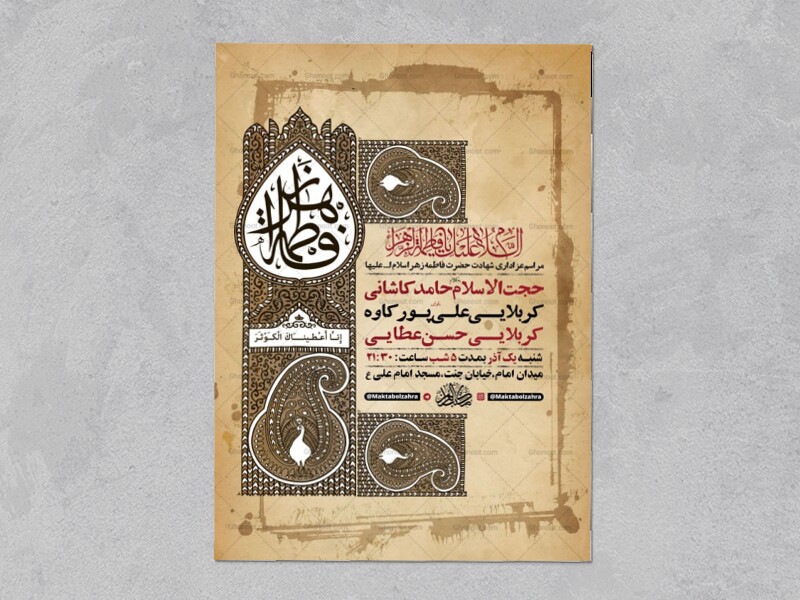 فاطمة الزهراء
السلام علیك یا فاطمة الزهرا
مراسم عزاداری شهادت حضرت فاطمه زهرا سلام الله علیها
حجت الاسلام حامد کاشانی
کربلایی علی پور کاوه
کربلایی حسن عطایی
إنا أعطيناك الكوثر
شنبه یک آذر بمدت ۵ شب ساعت: ۲۱:۳۰
میدان امام، خیابان جنت، مسجد امام علی ع
@Maktabolzahra @Maktabolzahra
Ghonoot.com